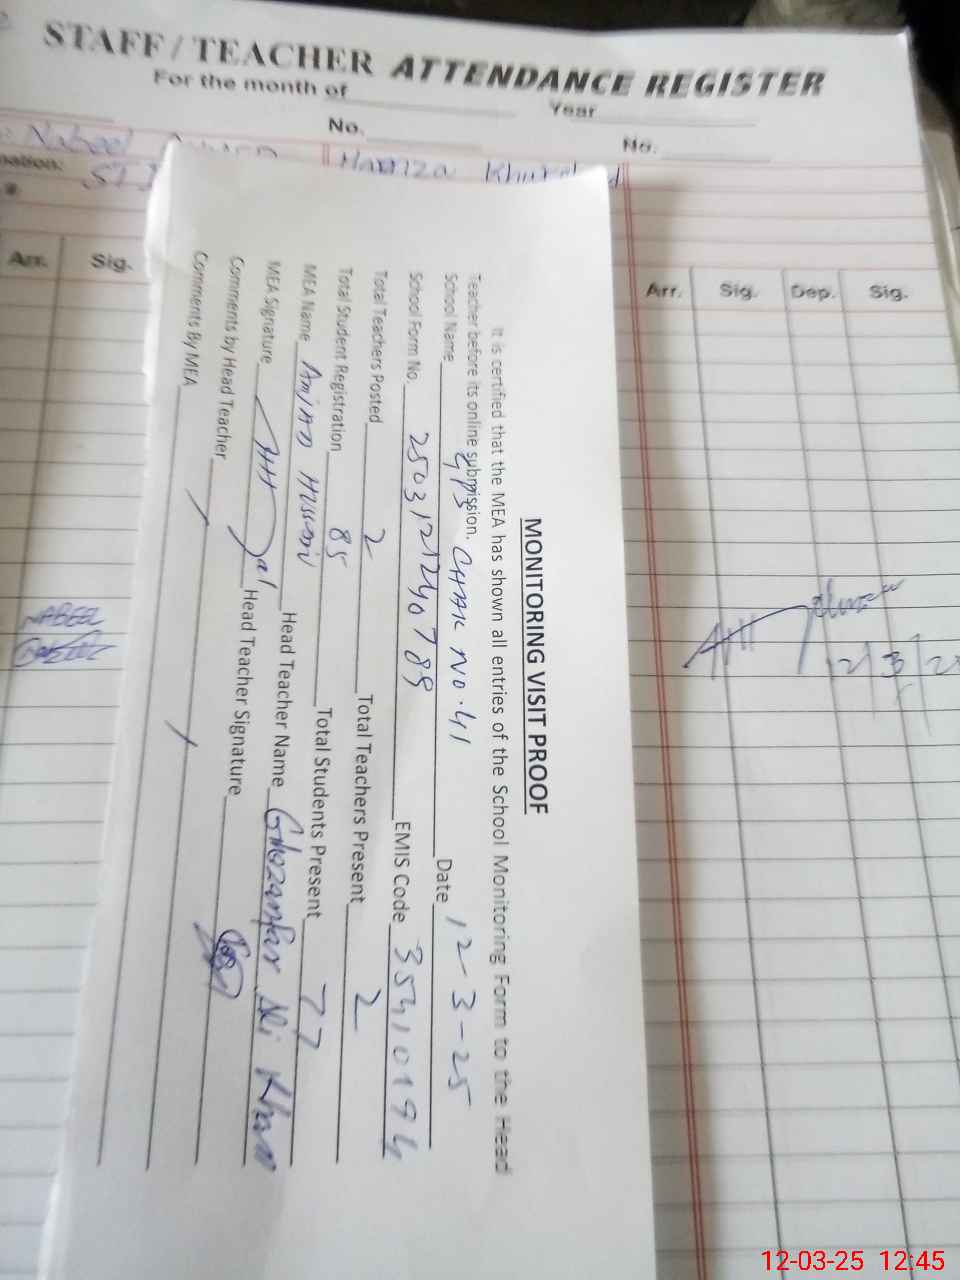 STAFF / TEACHER ATTENDANCE REGISTER
For the month of Year
No. No.
Nabeel Hamza
nation:
Arr. Sig. Arr. Sig. Dep. Sig.
MONITORING VISIT PROOF
It is certified that the MEA has shown all entries of the School Monitoring Form to the Head
Teacher before its online submission.
School Name GPS CHAK NO.41 Date 12-3-25
School Form No. 25031212407 89 EMIS Code 35410194
Total Teachers Posted 2 Total Teachers Present 2
Total Student Registration 85 Total Students Present 77
MEA Name AMJAD HUSSAIN Head Teacher Name Ghozanfar Ali Khan
MEA Signature Head Teacher Signature
Comments by Head Teacher
Comments By MEA
NABEEL
12/3/25
12-03-25 12:45